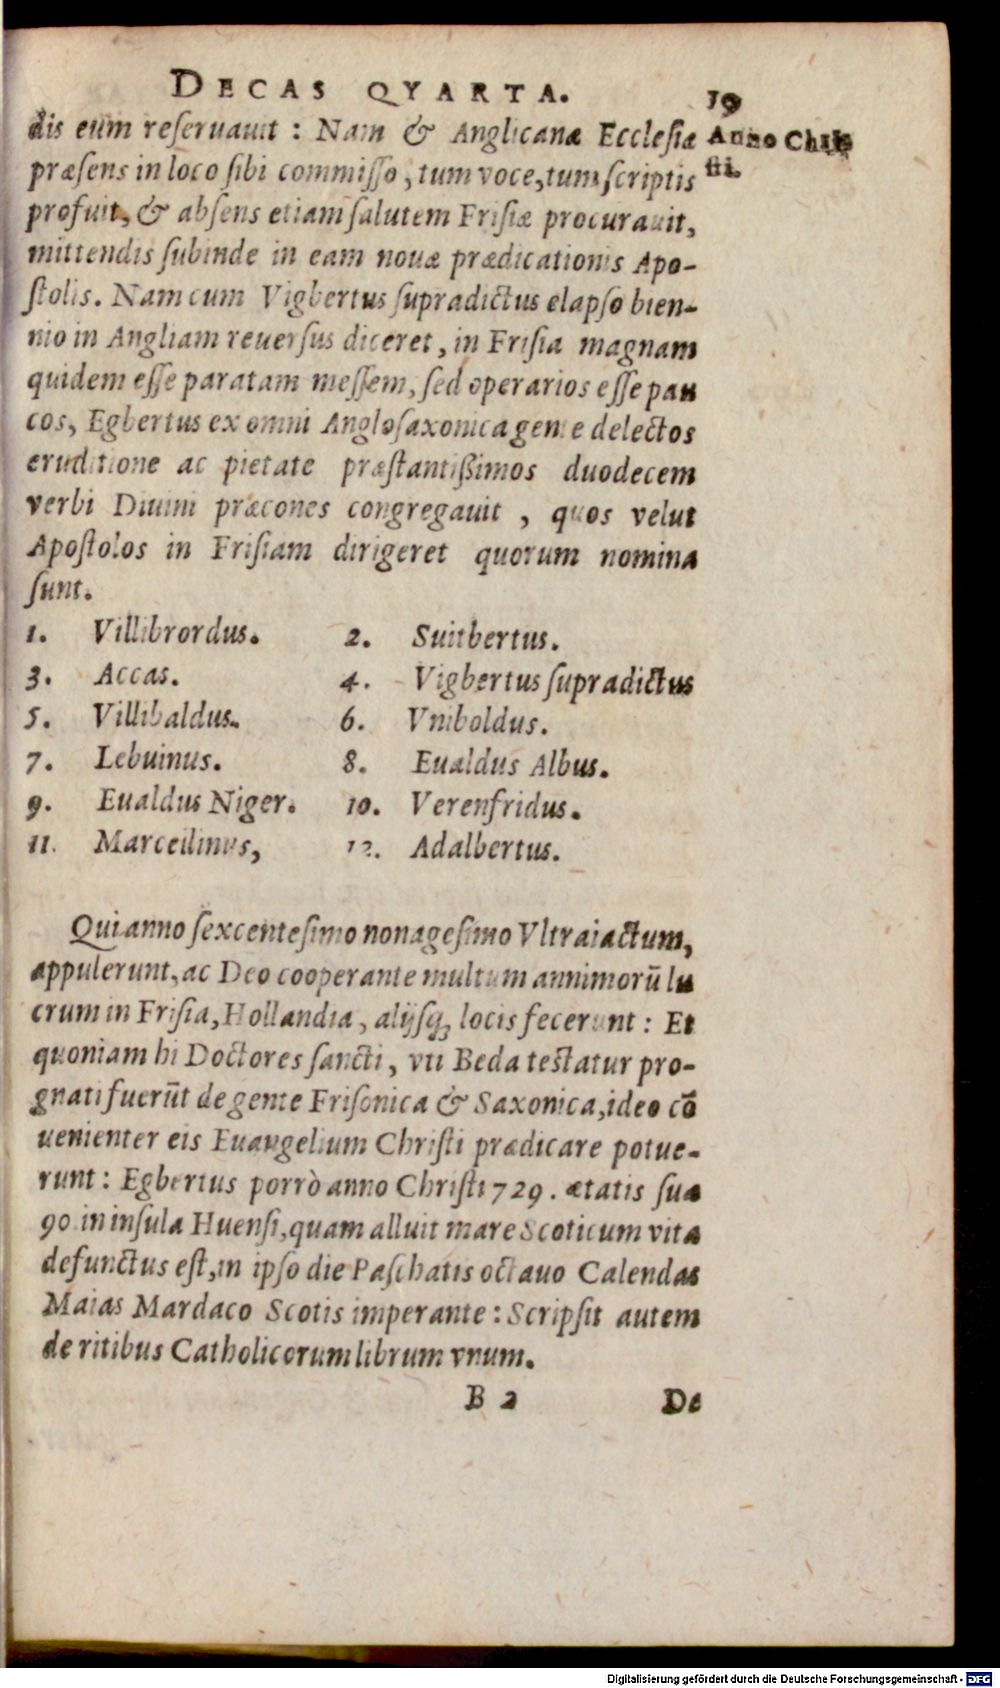 DECAS QVARTA. 19
dis eum reſeruauit : Nam & Anglicanæ Eccleſiæ
Anno Chri
ſti.
præſens in loco ſibi commiſſo, tum voce, tum ſcriptis
profuit, & abſens etiam ſalutem Friſiæ procurauit,
mittendis ſubinde in eam nouæ prædicationis Apo-
ſtolis. Nam cum Vigbertus ſupradictus elapſo bien-
nio in Angliam reuerſus diceret, in Friſia magnam
quidem eſſe paratam meſſem, ſed operarios eſſe pau
cos, Egbertus ex omni Angloſaxonica gente delectos
eruditione ac pietate præſtantißimos duodecem
verbi Diuini præcones congregauit , quos velut
Apoſtolos in Friſiam dirigeret quorum nomina
ſunt.
1. Villibrordus. 2. Suitbertus.
3. Accas. 4. Vigbertus ſupradictus
5. Villibaldus. 6. Vniboldus.
7. Lebuinus. 8. Eualdus Albus.
9. Eualdus Niger. 10. Verenfridus.
11. Marcellinus, 12. Adalbertus.
Qui anno ſexcenteſimo nonageſimo Vltraiactum,
appulerunt, ac Deo cooperante multum annimorū lu
crum in Friſia, Hollandia, alijſq; locis fecerunt : Et
quoniam hi Doctores ſancti, vti Beda teſtatur pro-
gnati fuerūt de gente Friſonica & Saxonica, ideo cō
uenienter eis Euangelium Chriſti prædicare potue-
runt : Egbertus porrò anno Chriſti 729. ætatis ſua
90 in inſula Huenſi, quam alluit mare Scoticum vita
defunctus eſt, in ipſo die Paſchatis octauo Calendas
Maias Mardaco Scotis imperante : Scripſit autem
de ritibus Catholicorum librum vnum.
B 2 De
Digitalisierung gefördert durch die Deutsche Forschungsgemeinschaft - DFG